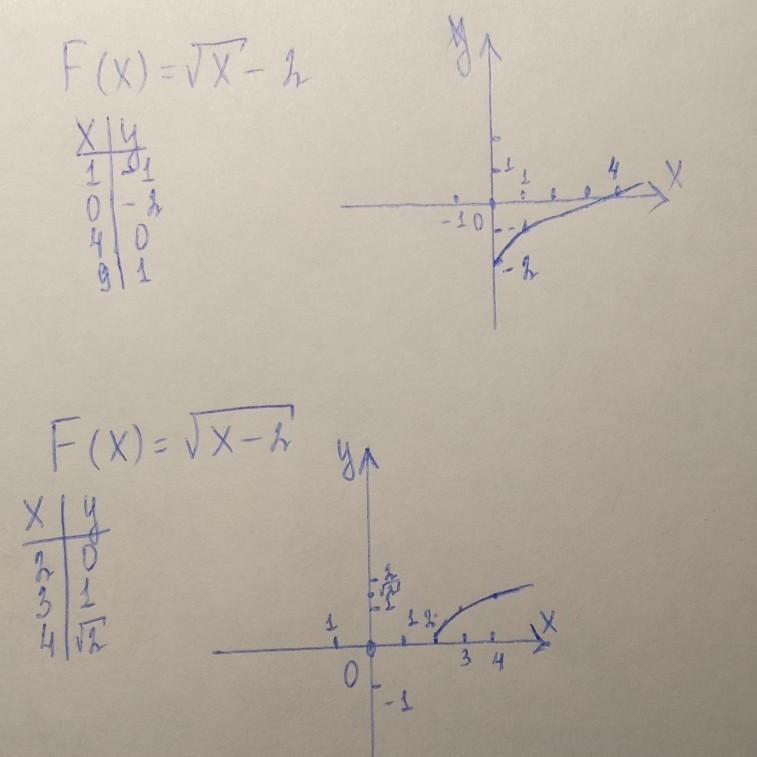 F(x) = √x - 2
x | y
1 | -1
0 | -2
4 | 0
9 | 1
y
1
1
4
x
-1
0
-1
-2
F(x) = √(x-2)
x | y
2 | 0
3 | 1
4 | √2
y
2
√2
1
1
1
2
x
0
3
4
-1